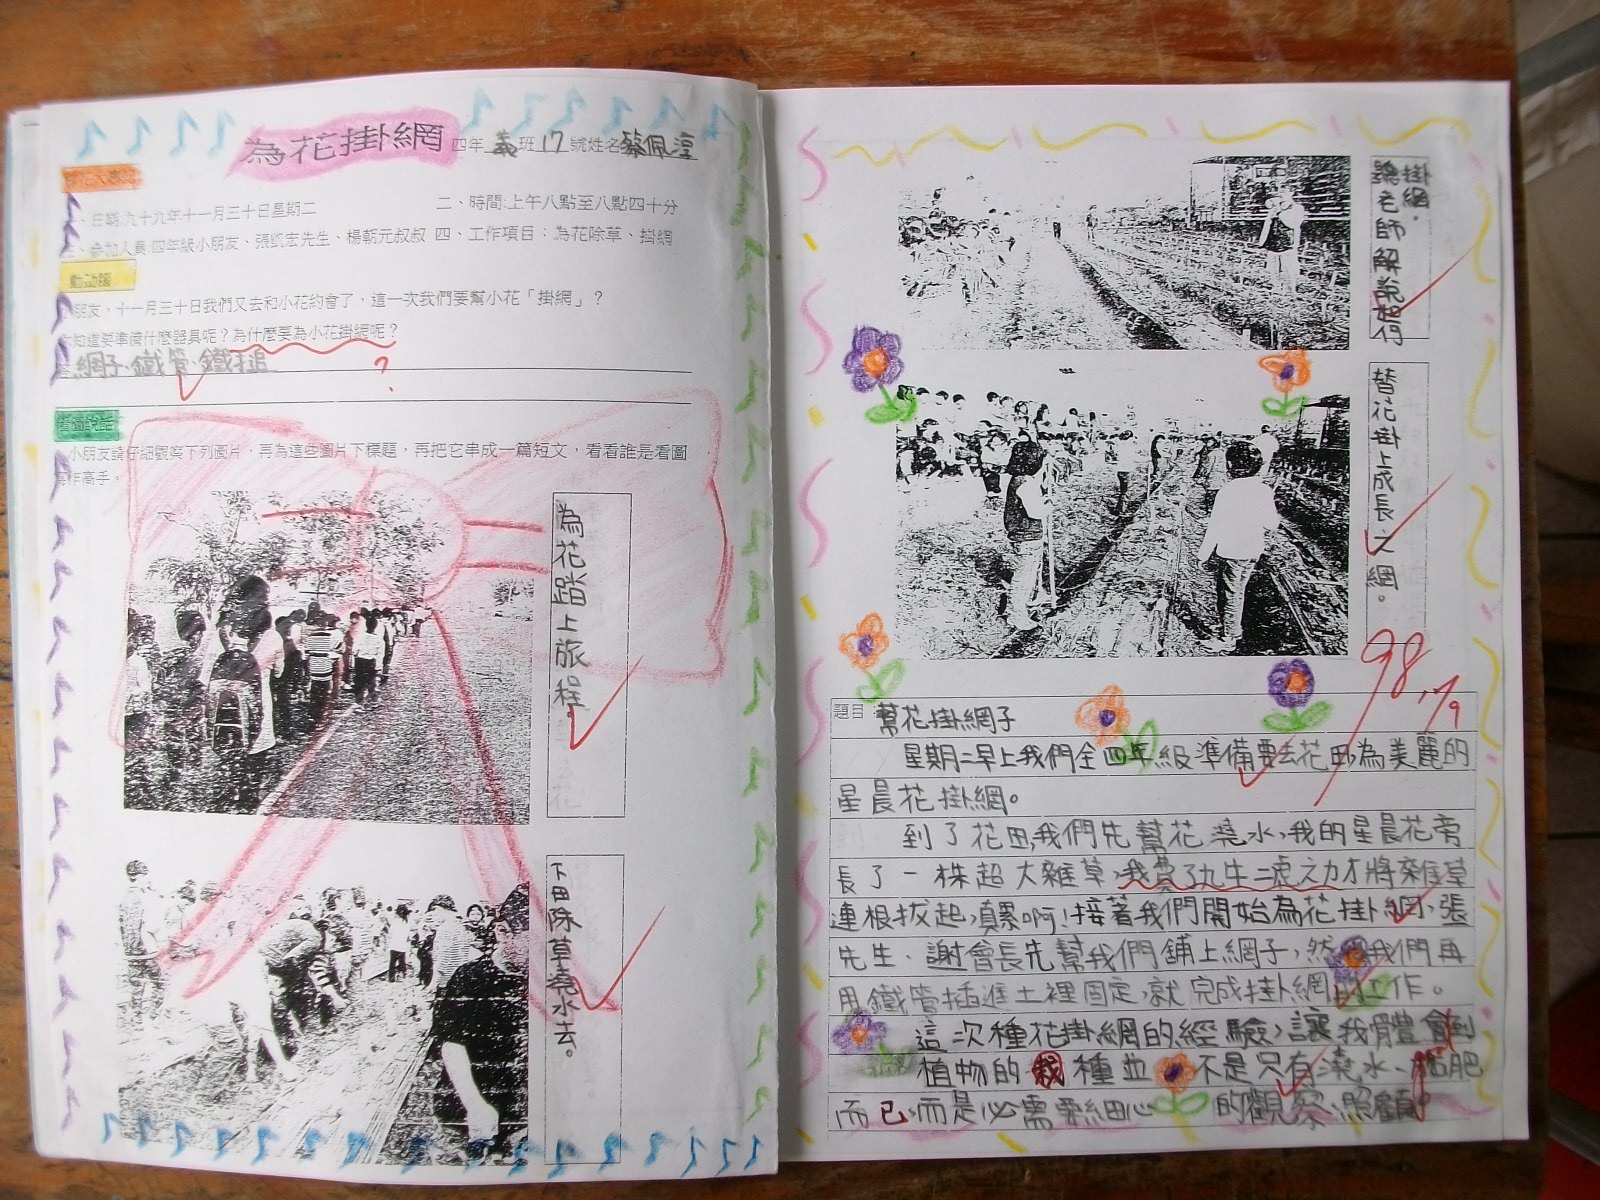 為花掛網 四年 義 班 17 號姓名 蔡佩淳
日期:九十九年十一月三十日星期二 二、時間:上午八點至八點四十分
參加人員:四年級小朋友、張凱宏先生、楊朝元叔叔 四、工作項目：為花除草、掛網
動動腦
朋友，十一月三十日我們又去和小花約會了，這一次我們要幫小花「掛網」？
知道要準備什麼器具呢？為什麼要為小花掛網呢？
網子、鐵管、鐵搥
?
看圖說話
小朋友請仔細觀察下列圖片，再為這些圖片下標題，再把它串成一篇短文，看看誰是看圖
作高手。
為花踏上旅程。
下田除草澆水去。
聽老師解說如何
掛網。
替花掛上成長之網。
98, 1/9
題目 幫花掛網子
星期二早上我們全四年級準備要去花田為美麗的
星晨花掛網。
到了花田,我們先幫花澆水,我的星晨花旁
長了一株超大雜草,我費了九牛二虎之力才將雜草
連根拔起,真累啊!接著我們開始為花掛網,張
先生、謝會長先幫我們鋪上網子,然後我們再
用鐵管插進土裡固定,就完成掛網的工作。
這次種花掛網的經驗,讓我體會到
植物的栽種並不是只有澆水、施肥
而已,而是必需要細心的觀察、照顧。